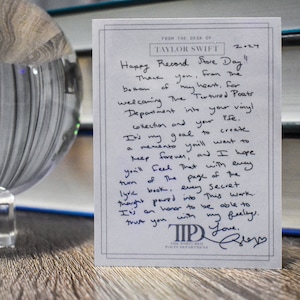 FROM THE DESK OF
TAYLOR SWIFT
2024
Happy Record Store Day!!
Thank you, from the
bottom of my heart, for
welcoming The Tortured Poets
Department into your vinyl
collection and your life.
It's my goal to create
a memento you'll want to
keep forever, and I hope
you'll feel that with every
turn of the page of the
lyric book, every secret
thought poured into this work
It's an honor to be able to
trust you with my feelings.
Love,
TTPD
THE TORTURED
POETS DEPARTMENT